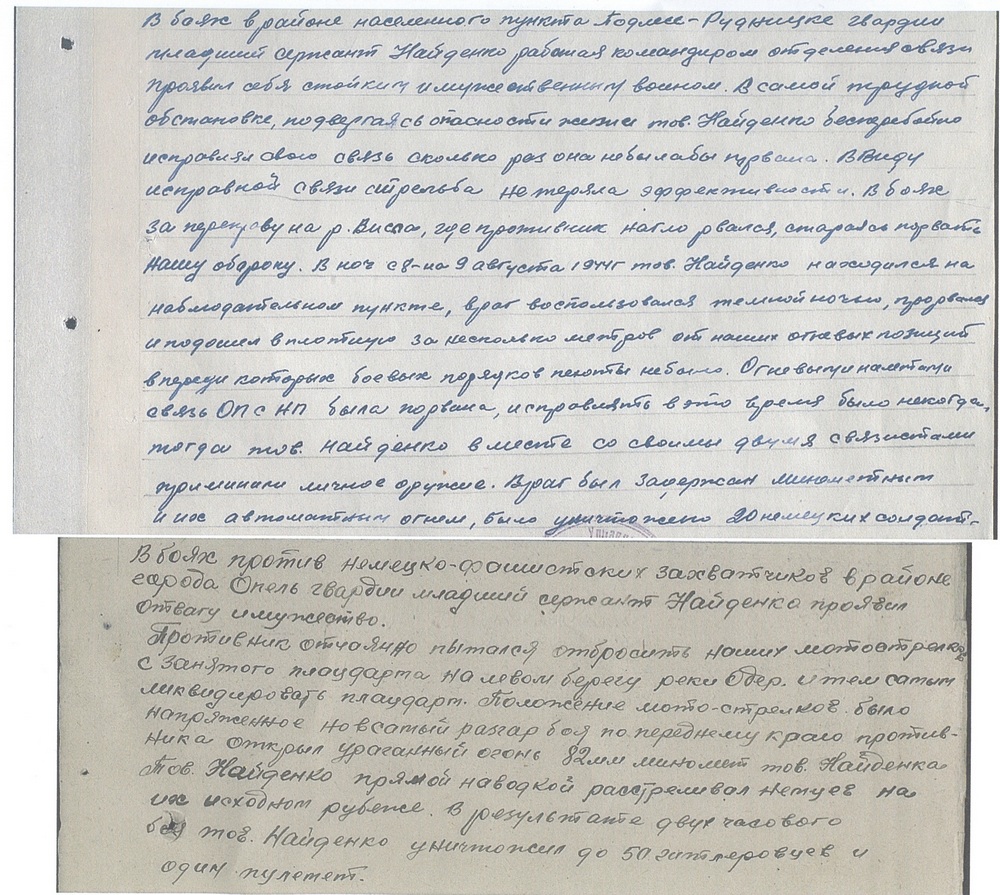 В боях в районе населенного пункта Подлесе-Рудницке гвардии
младший сержант Найденко работая командиром отделения связи
проявил себя стойким и мужественным воином. В самой трудной
обстановке, подвергаясь опасности жизни тов. Найденко бесперебойно
исправлял свою связь сколько раз она небылабы порвана. В виду
исправной связи стрельба не теряла эффективности. В боях
за переправу на р. Висла, где противник нагло рвался, стараясь порвать
нашу оборону. В ноч с 8-на 9 августа 1944г тов. Найденко находился на
наблюдательном пункте, враг воспользовался темной ночью, прорвался
и подошел вплотную за несколько метров от наших огневых позиций
впереди которых боевых порядков пехоты небыло. Огневыми налетами
связь ОП с НП была порвана, исправлять в это время было некогда,
тогда тов. Найденко вместе со своими двумя связистами
применили личное оружие. Враг был задержан минометным
и их автоматным огнем, было уничтожено 20 немецких солдат.
В боях против немецко-фашистских захватчиков в районе
города Опель гвардии младший сержант Найденко проявил
отвагу и мужество.
Противник отчаянно пытался отбросить наших мотострелков
с занятого плацдарта на левом берегу реки Одер. и тем самым
ликвидировать плацдарт. Положение мото-стрелков было
напряженное но в самый разгар боя по переднему краю против-
ника открыл ураганный огонь 82мм миномет тов. Найденко
Тов. Найденко прямой наводкой расстреливал немцев на
их исходном рубеже. В результате двух часового
боя тов. Найденко уничтожил до 50 гитлеровцев и
один пулемет.